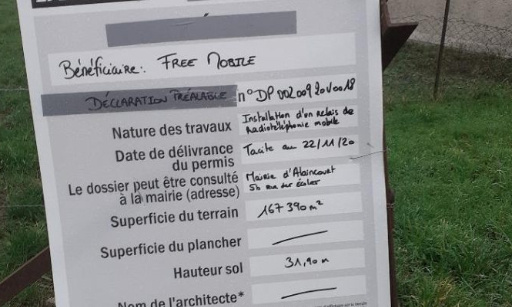 Bénéficiaire: FREE MOBILE
DÉCLARATION PRÉALABLE n° DP 002009 20V0018
Nature des travaux Installation d'un relais de
Radiotéléphonie mobile
Date de délivrance
du permis Tacite au 22/11/20
Le dossier peut être consulté
à la mairie (adresse) Mairie d'Alaincourt
5b rue
Superficie du terrain 167 390 m²
Superficie du plancher
Hauteur sol 31,90 m
Nom de l'architecte*